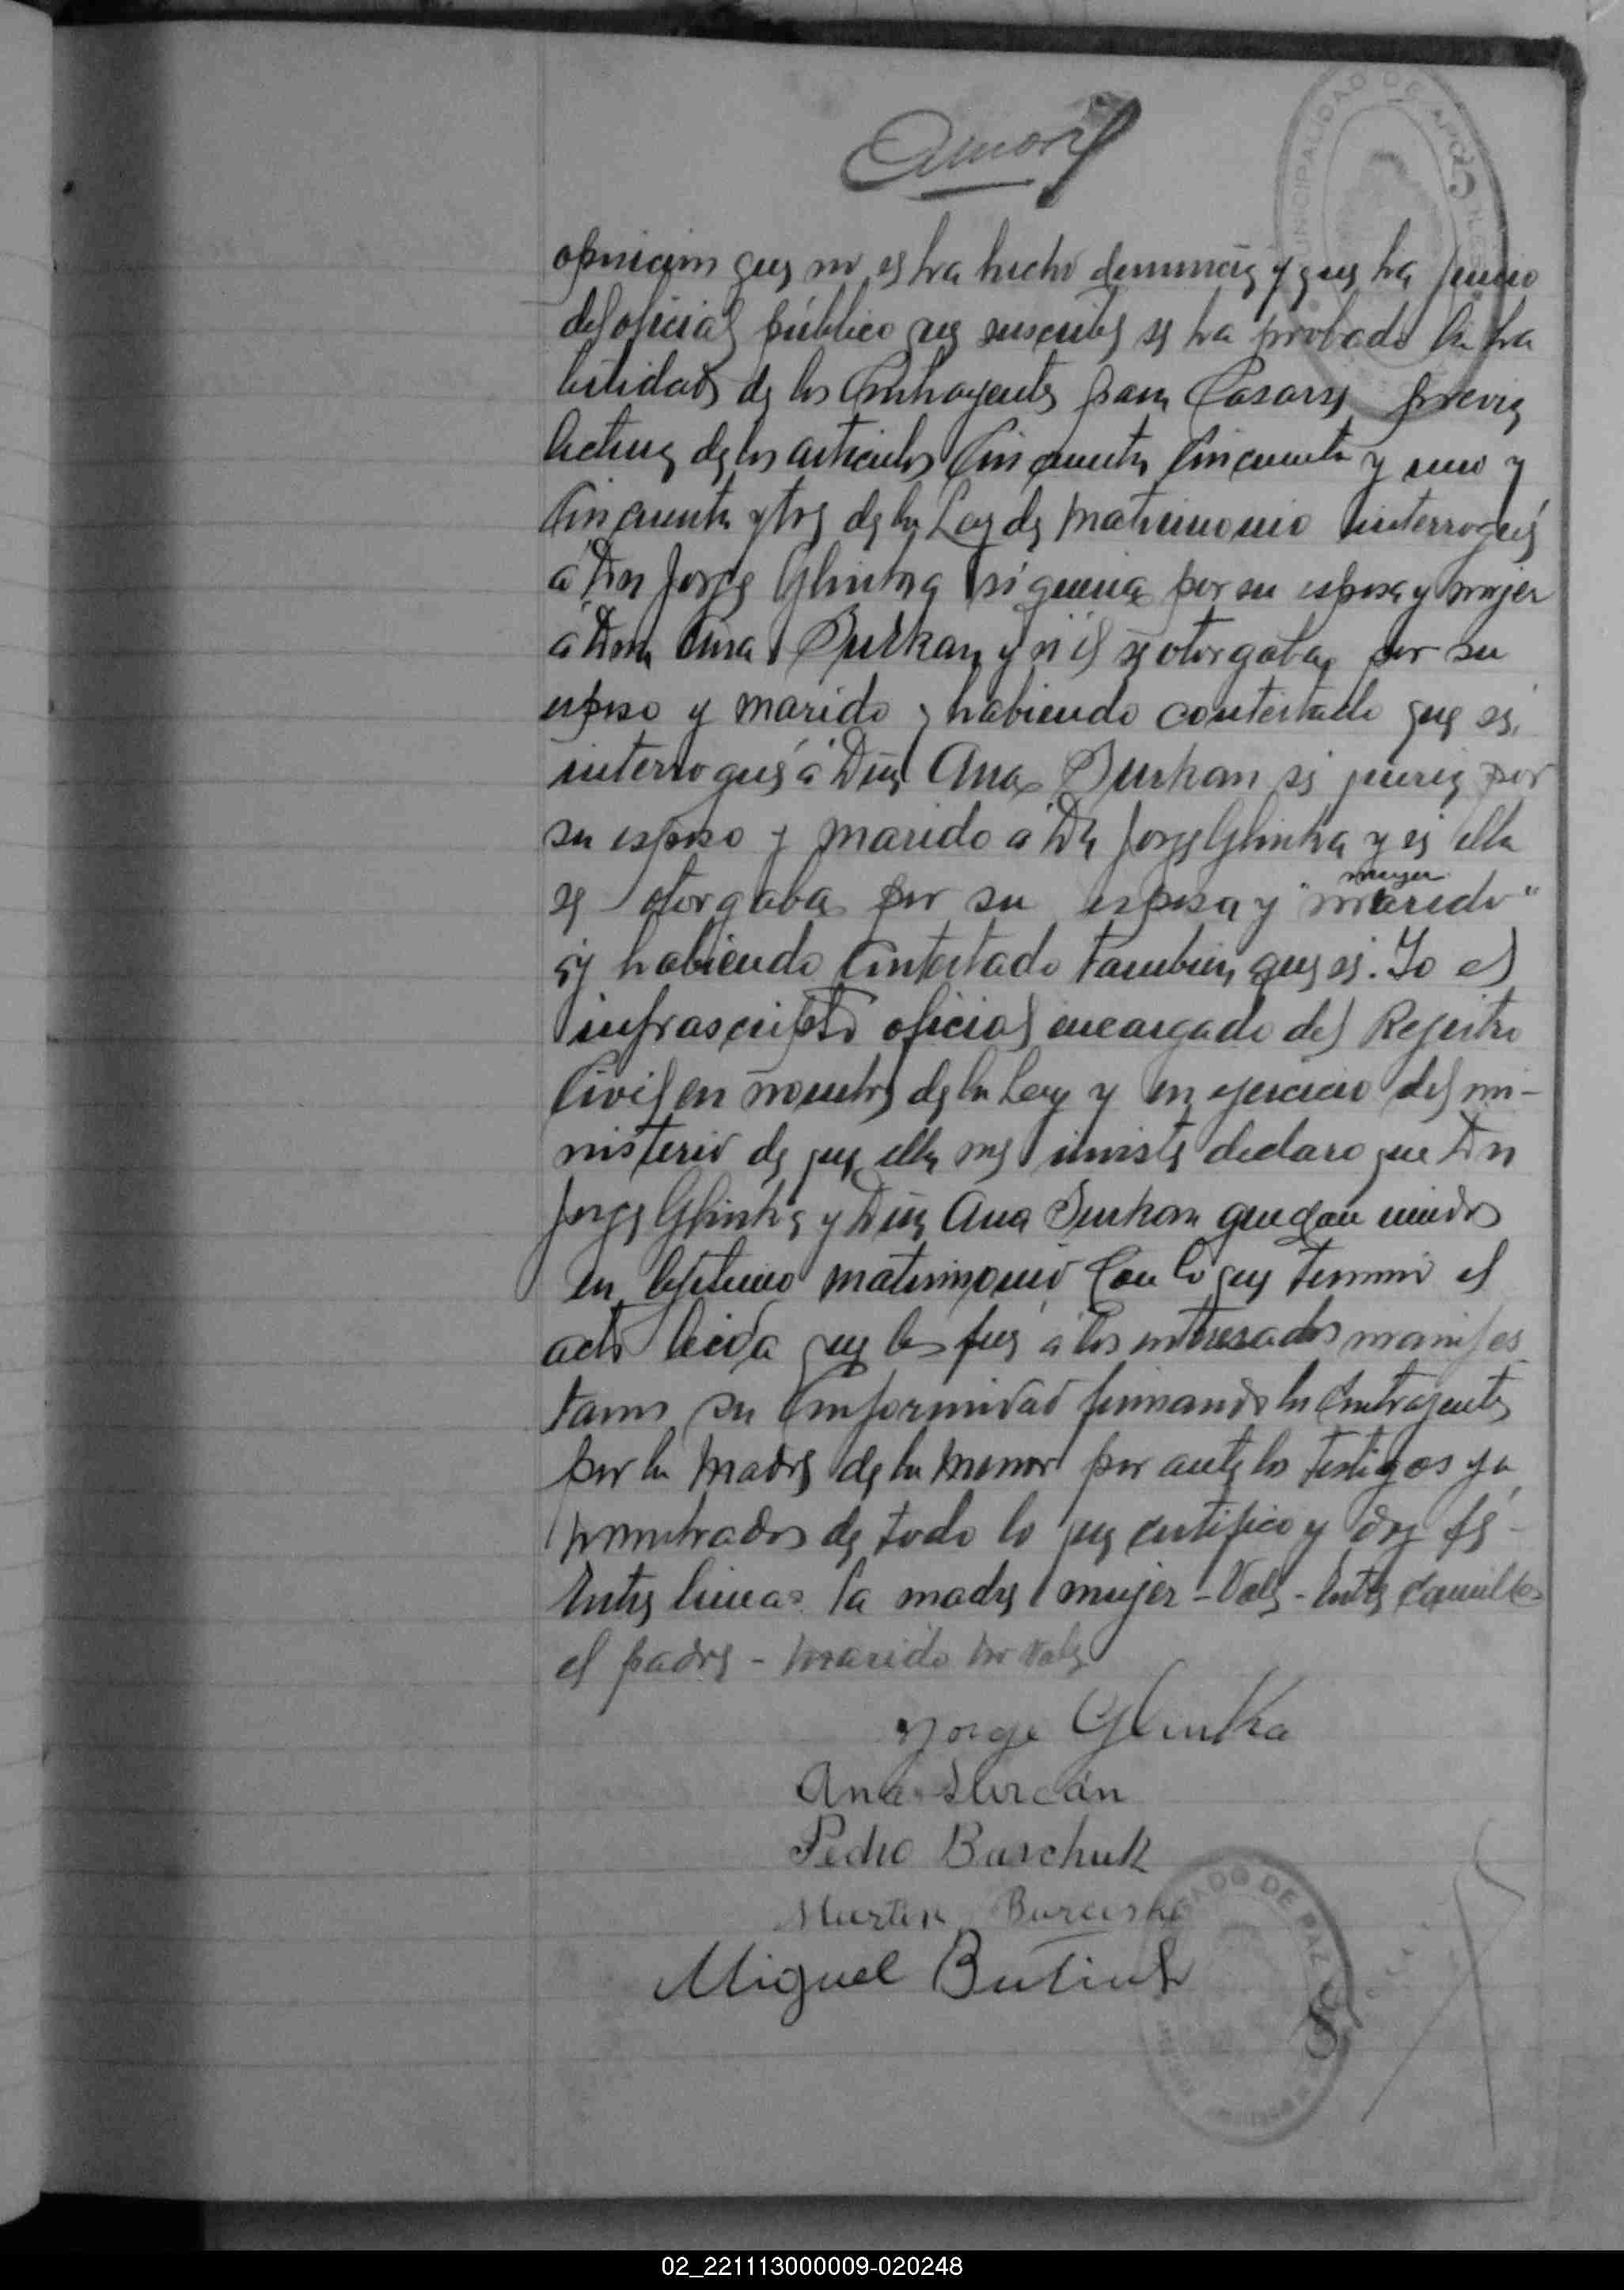 MUNICIPALIDAD DE APO
5
oposicion que no se ha hecho denuncia y que ha juicio
del oficial público que suscribe se ha probado la ha
bilidad de los Contrayentes para Casarse previa
lectura de los articulos Cincuenta Cincuenta y uno y
Cincuenta y tres de la Ley de Matrimonio interrogué
á Dn Jorge Glinka si queria por su esposa y mujer
á Dña Ana Durkan y si él se otorgaba por su
esposo y marido y habiendo contestado que si,
interrogué á Dña Ana Durkan si queria por
su esposo y marido á Dn Jorge Glinka y si ella
mujer
se otorgaba por su esposa y "marido"
y habiendo Contestado tambien que si. Yo el
infrascripto oficial encargado del Rejistro
Civil en nombre de la Ley y en ejercicio del mi-
nisterio de que ella me inviste declaro que Dn
Jorge Glinka y Dña Ana Durkan quedan unidos
en lejitimo matrimonio Con lo que terminó el
acto leida que les fué á los interesados manifes
taron su Conformidad firmando los Contrayentes
por la Madre de la Menor por ante los testigos ya
nombrados de todo lo que certifico y doy fé -
Entre lineas la madre mujer - Vale - Entre comillas
el padre - marido no vale
Jorge Glinka
Ana Durcán
Pedro Baschuk
Martin
Miguel Butiuk
JUZGADO DE PAZ
02_221113000009-020248